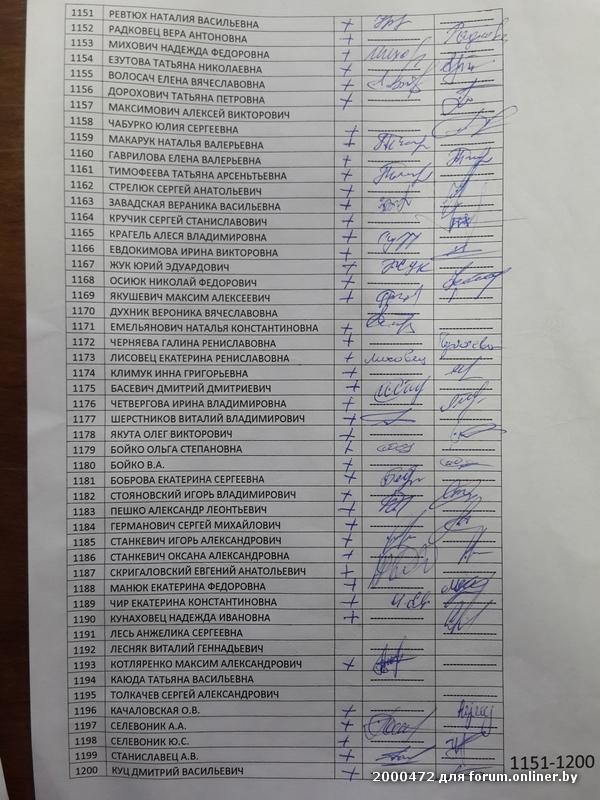 1151 РЕВТЮХ НАТАЛИЯ ВАСИЛЬЕВНА +
1152 РАДКОВЕЦ ВЕРА АНТОНОВНА +
1153 МИХОВИЧ НАДЕЖДА ФЕДОРОВНА +
1154 ЕЗУТОВА ТАТЬЯНА НИКОЛАЕВНА +
1155 ВОЛОСАЧ ЕЛЕНА ВЯЧЕСЛАВОВНА +
1156 ДОРОХОВИЧ ТАТЬЯНА ПЕТРОВНА +
1157 МАКСИМОВИЧ АЛЕКСЕЙ ВИКТОРОВИЧ
1158 ЧАБУРКО ЮЛИЯ СЕРГЕЕВНА +
1159 МАКАРУК НАТАЛЬЯ ВАЛЕРЬЕВНА +
1160 ГАВРИЛОВА ЕЛЕНА ВАЛЕРЬЕВНА +
1161 ТИМОФЕЕВА ТАТЬЯНА АРСЕНЬТЬЕВНА +
1162 СТРЕЛЮК СЕРГЕЙ АНАТОЛЬЕВИЧ +
1163 ЗАВАДСКАЯ ВЕРАНИКА ВАСИЛЬЕВНА +
1164 КРУЧИК СЕРГЕЙ СТАНИСЛАВОВИЧ +
1165 КРАГЕЛЬ АЛЕСЯ ВЛАДИМИРОВНА +
1166 ЕВДОКИМОВА ИРИНА ВИКТОРОВНА +
1167 ЖУК ЮРИЙ ЭДУАРДОВИЧ + Жук
1168 ОСИЮК НИКОЛАЙ ФЕДОРОВИЧ +
1169 ЯКУШЕВИЧ МАКСИМ АЛЕКСЕЕВИЧ +
1170 ДУХНИК ВЕРОНИКА ВЯЧЕСЛАВОВНА
1171 ЕМЕЛЬЯНОВИЧ НАТАЛЬЯ КОНСТАНТИНОВНА +
1172 ЧЕРНЯЕВА ГАЛИНА РЕНИСЛАВОВНА +
1173 ЛИСОВЕЦ ЕКАТЕРИНА РЕНИСЛАВОВНА +
1174 КЛИМУК ИННА ГРИГОРЬЕВНА +
1175 БАСЕВИЧ ДМИТРИЙ ДМИТРИЕВИЧ +
1176 ЧЕТВЕРГОВА ИРИНА ВЛАДИМИРОВНА +
1177 ШЕРСТНИКОВ ВИТАЛИЙ ВЛАДИМИРОВИЧ +
1178 ЯКУТА ОЛЕГ ВИКТОРОВИЧ +
1179 БОЙКО ОЛЬГА СТЕПАНОВНА +
1180 БОЙКО В.А. +
1181 БОБРОВА ЕКАТЕРИНА СЕРГЕЕВНА +
1182 СТОЯНОВСКИЙ ИГОРЬ ВЛАДИМИРОВИЧ +
1183 ПЕШКО АЛЕКСАНДР ЛЕОНТЬЕВИЧ +
1184 ГЕРМАНОВИЧ СЕРГЕЙ МИХАЙЛОВИЧ +
1185 СТАНКЕВИЧ ИГОРЬ АЛЕКСАНДРОВИЧ +
1186 СТАНКЕВИЧ ОКСАНА АЛЕКСАНДРОВНА +
1187 СКРИГАЛОВСКИЙ ЕВГЕНИЙ АНАТОЛЬЕВИЧ +
1188 МАНЮК ЕКАТЕРИНА ФЕДОРОВНА +
1189 ЧИР ЕКАТЕРИНА КОНСТАНТИНОВНА +
1190 КУНАХОВЕЦ НАДЕЖДА ИВАНОВНА +
1191 ЛЕСЬ АНЖЕЛИКА СЕРГЕЕВНА
1192 ЛЕСНЯК ВИТАЛИЙ ГЕННАДЬЕВИЧ
1193 КОТЛЯРЕНКО МАКСИМ АЛЕКСАНДРОВИЧ +
1194 КАЮДА ТАТЬЯНА ВАСИЛЬЕВНА
1195 ТОЛКАЧЕВ СЕРГЕЙ АЛЕКСАНДРОВИЧ
1196 КАЧАЛОВСКАЯ О.В. +
1197 СЕЛЕВОНИК А.А. +
1198 СЕЛЕВОНИК Ю.С. +
1199 СТАНИСЛАВЕЦ А.В. +
1200 КУЦ ДМИТРИЙ ВАСИЛЬЕВИЧ +
1151-1200
2000472 для forum.onliner.by